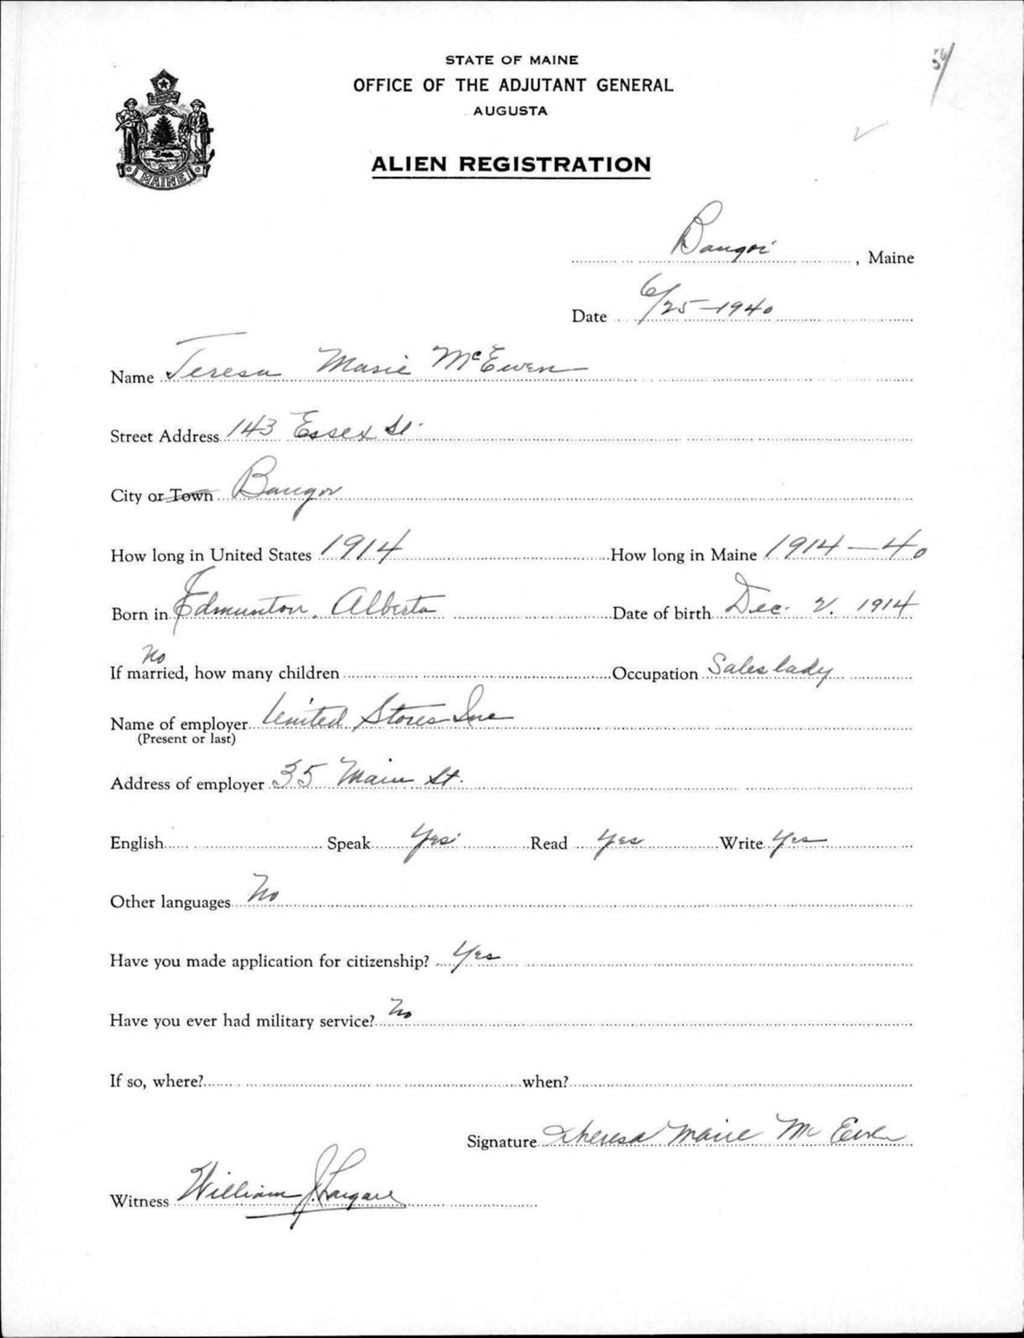 54
STATE OF MAINE
OFFICE OF THE ADJUTANT GENERAL
AUGUSTA
ALIEN REGISTRATION
MAINE
Bangor, Maine
Date 6/25-1940
Name Teresa Marie McEwen
Street Address 143 Essex St.
City or Town Bangor
How long in United States 1914 How long in Maine 1914-40
Born in Edmunton, Alberta Date of birth Dec. 2, 1914
No
If married, how many children Occupation Sales lady
Name of employer United Stores Inc
(Present or last)
Address of employer 35 Main St.
English Speak Yes Read Yes Write Yes
Other languages No
Have you made application for citizenship? Yes
Have you ever had military service? No
If so, where? when?
Signature Theresa Marie McEwen
Witness William J.